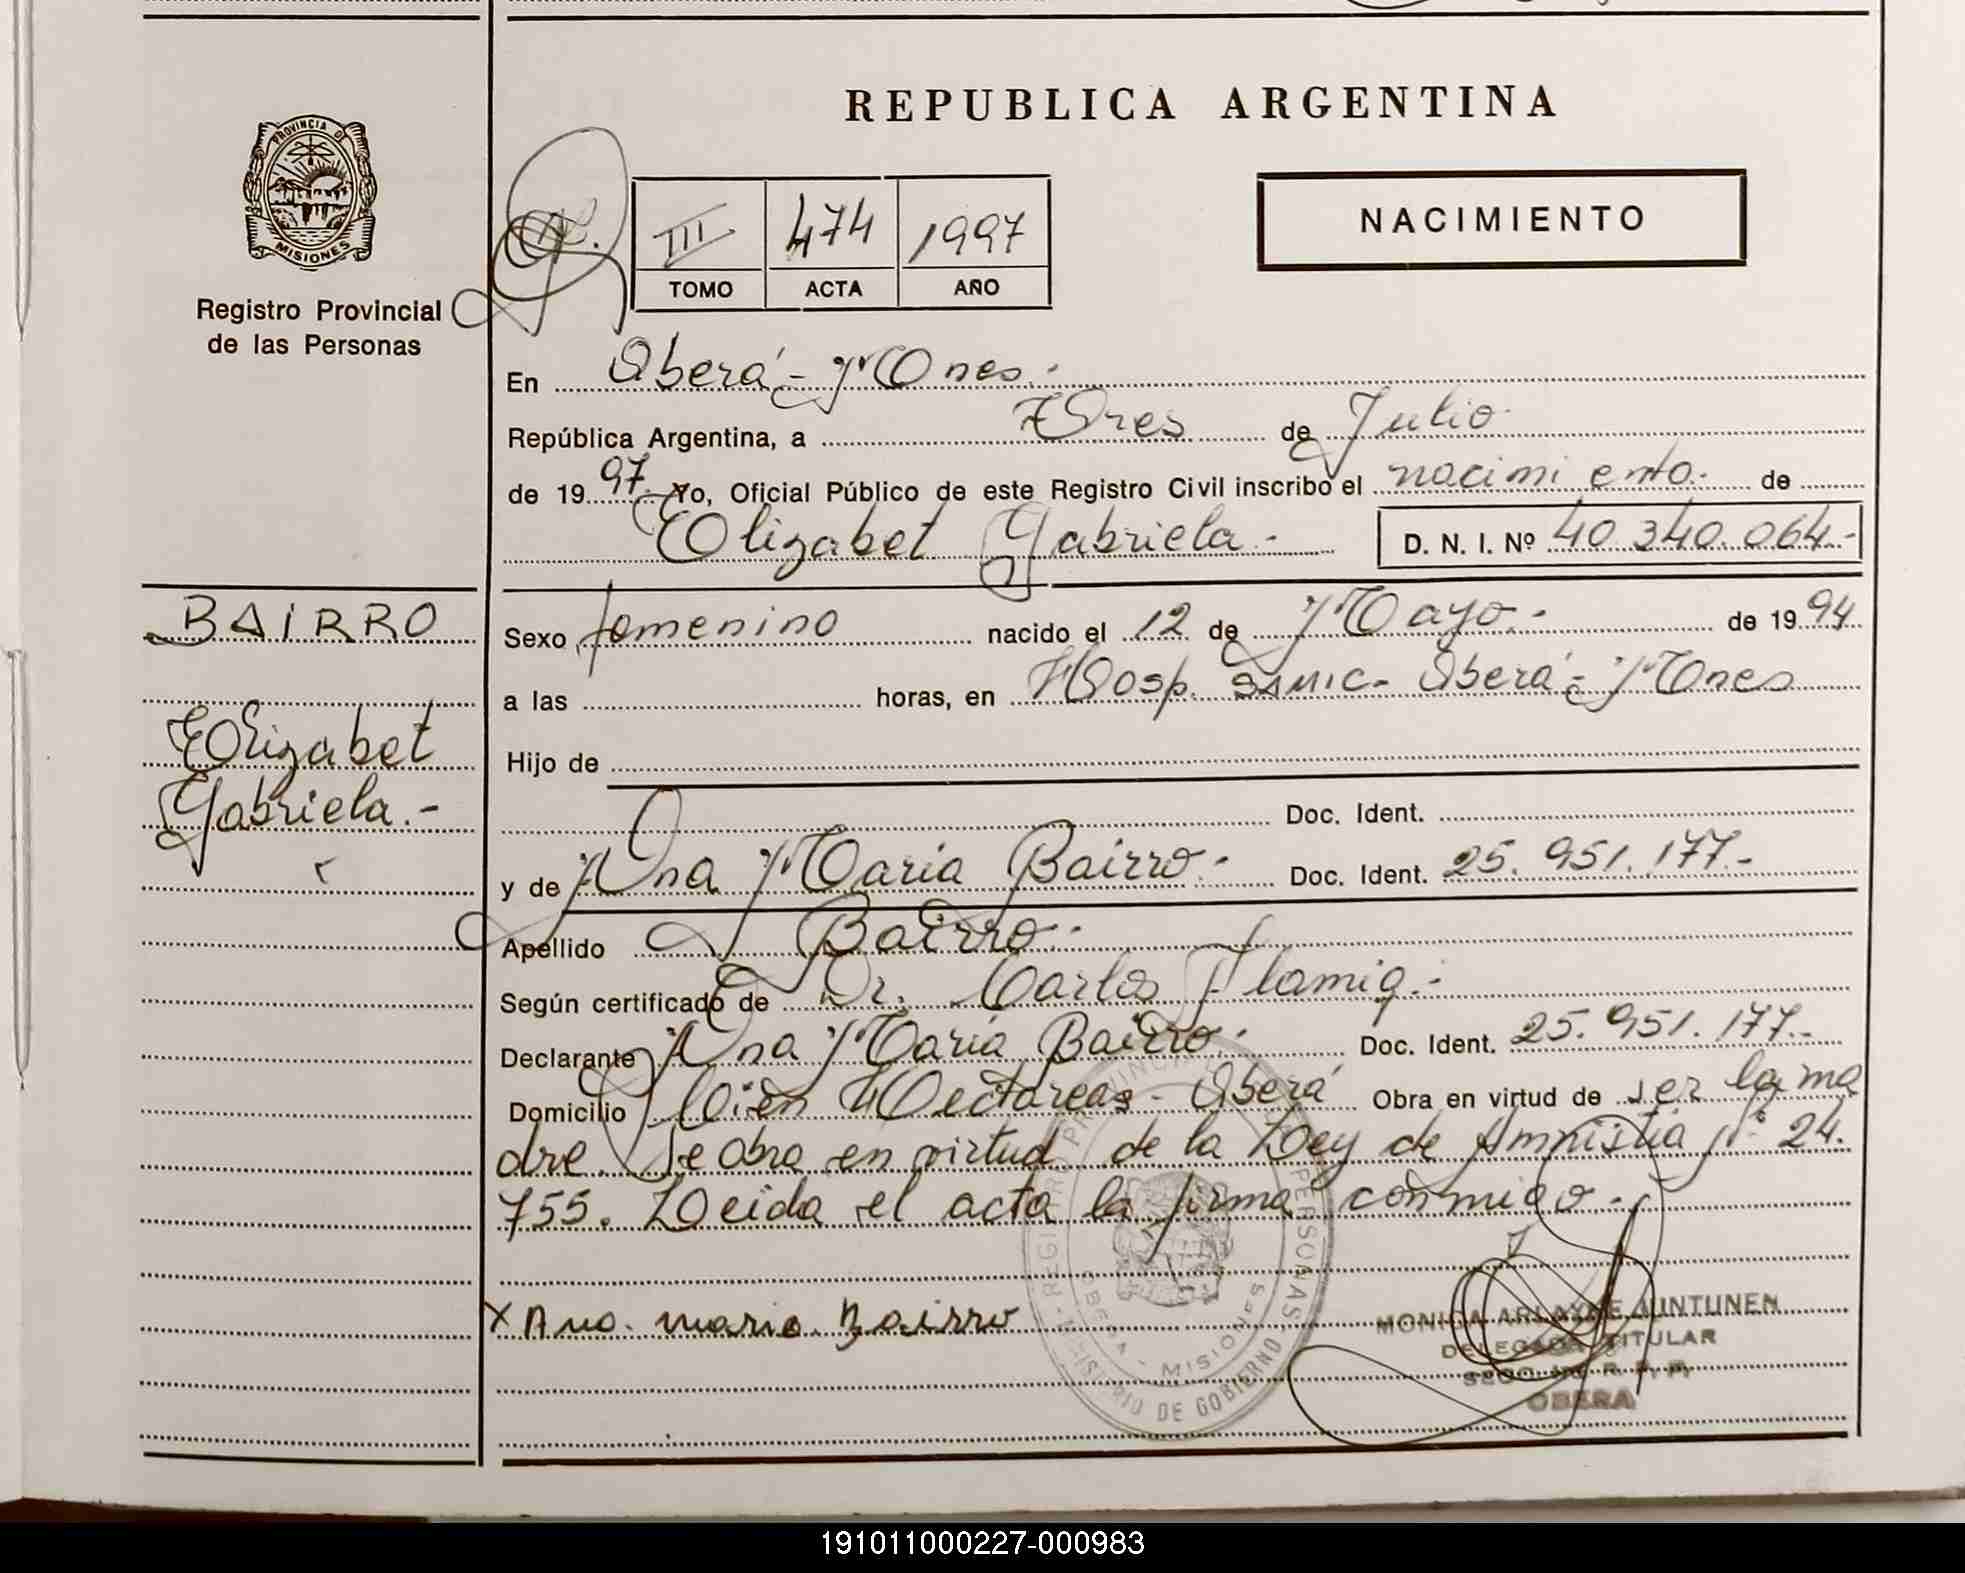 REPUBLICA ARGENTINA
PROVINCIA DE
MISIONES
Registro Provincial
de las Personas
III 474 1997
TOMO ACTA AÑO
NACIMIENTO
En Oberá - Mnes.-
República Argentina, a Tres de Julio
de 1997. Yo, Oficial Público de este Registro Civil inscribo el nacimiento. de
Elizabet Gabriela.- D. N. I. Nº 40.340.064.-
BAIRRO
Elizabet
Gabriela.-
Sexo femenino nacido el 12 de Mayo.- de 1994
a las horas, en Hosp. SAMIC- Oberá - Mnes
Hijo de
Doc. Ident.
y de Ana Maria Bairro.- Doc. Ident. 25.951.177.-
Apellido Bairro.-
Según certificado de Dr. Carlos Flamig.-
Declarante Ana Maria Bairro.- Doc. Ident. 25.951.177.-
Domicilio Cien Hectareas - Oberá Obra en virtud de ser la ma
dre. Se obra en virtud de la Ley de Amnistia Nº 24.
755. Leida el acta la firma conmigo.-
X Ana. maria. Bairro
MONICA ARLAYNE AUNTUNEN
DELEGADA TITULAR
R. P. P.
OBERA
OBERA - MISIONES
MINISTERIO DE GOBIERNO
191011000227-000983